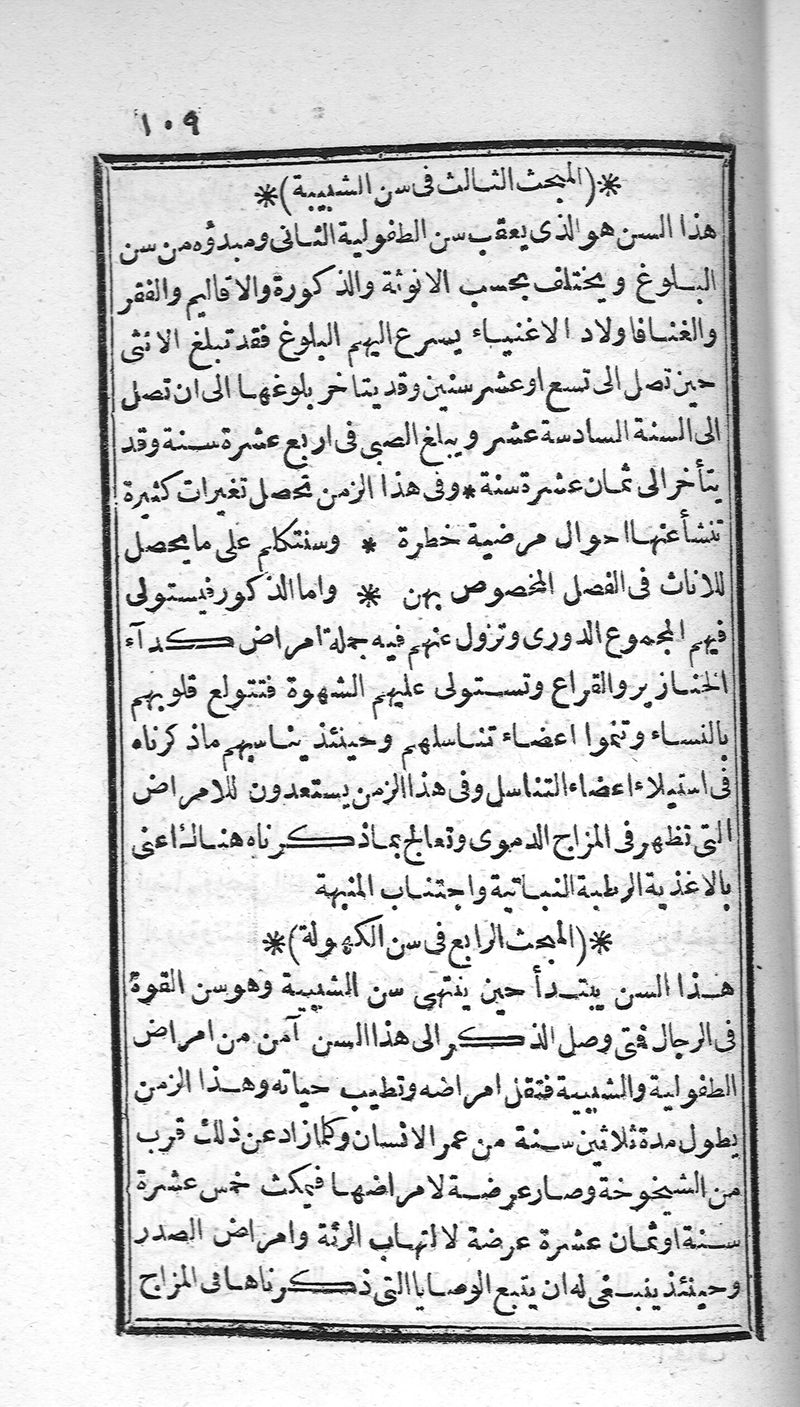 ١٠٩
*(المبحث الثالث فى سن الشبيبة)*
هذا السن هو الذى يعقب سن الطفولية الثانى ومبدؤه من سن
البلوغ ويختلف بحسب الانوثة والذكورة والاقاليم والفقر
والغنا فاولاد الاغنياء يسرع اليهم البلوغ فقد تبلغ الانثى
حين تصل الى تسع او عشر سنين وقد يتاخر بلوغها الى ان تصل
الى السنة السادسة عشر ويبلغ الصبى فى اربع عشرة سنة وقد
يتأخر الى ثمان عشرة سنة * وفى هذا الزمن تحصل تغيرات كثيرة
تنشأ عنها احوال مرضية خطرة * وسنتكلم على ما يحصل
للاناث فى الفصل المخصوص بهن * واما الذكور فيستولى
فيهم المجموع الدورى وتزول عنهم فيه جملة امراض كدآء
الخنازير والقراع وتستولى عليهم الشهوة فتتولع قلوبهم
بالنساء وتنموا اعضاء تناسلهم وحينئذ يناسبهم ماذكرناه
فى استيلاء اعضاء التناسل وفى هذا الزمن يستعدون للامراض
التى تظهر فى المزاج الدموى وتعالج بماذكرناه هنالك اعنى
بالاغذية الرطبة النباتية واجتناب المنبهة
*(المبحث الرابع فى سن الكهولة)*
هذا السن يبتدأ حين ينتهى سن الشبيبة وهو سن القوة
فى الرجال فمتى وصل الذكر الى هذا السن آمن من امراض
الطفولية والشبيبة فتقل امراضه وتطيب حياته وهذا الزمن
يطول مدة ثلاثين سنة من عمر الانسان وكلما زاد عن ذلك قرب
من الشيخوخة وصار عرضة لامراضها فيمكث خمس عشرة
سنة او ثمان عشرة عرضة لالتهاب الرئة وامراض الصدر
وحينئذ ينبغى له ان يتبع الوصايا التى ذكرناها فى المزاج